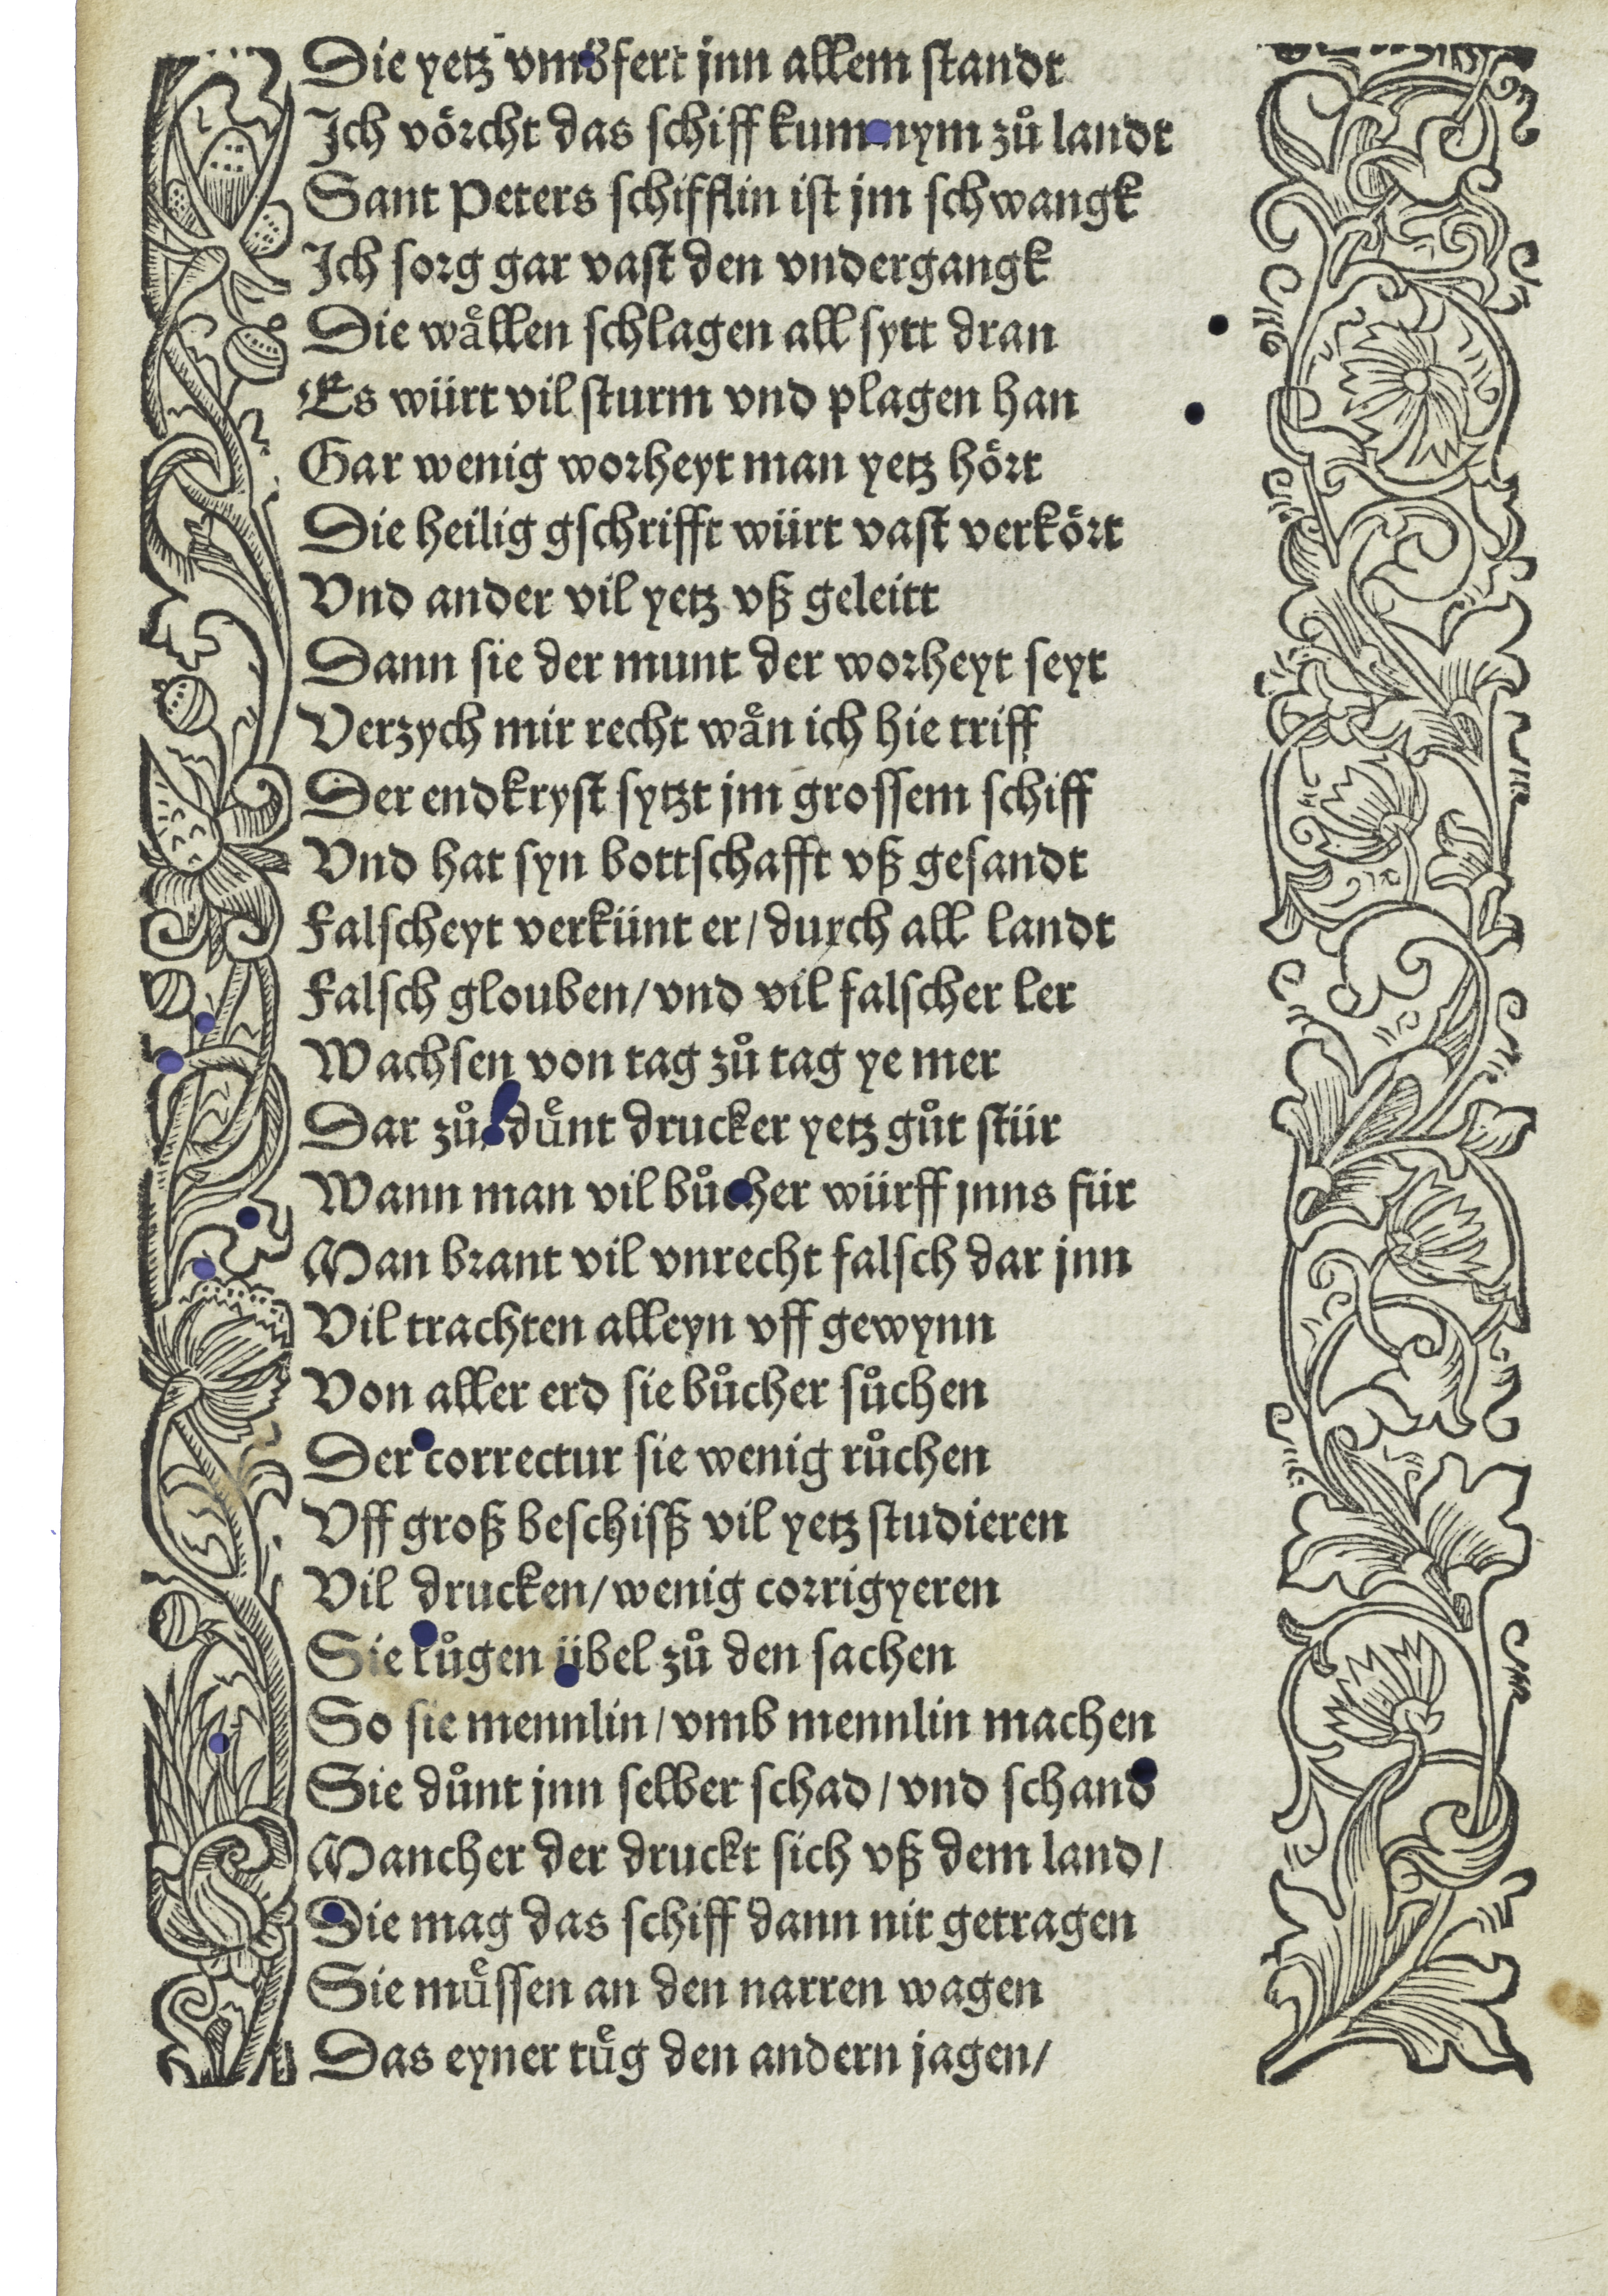 Die yetz vmbfert jnn allem standt
Jch vörcht das schiff kum nym zů landt
Sant Peters schifflin ist jm schwangk
Jch sorg gar vast den vndergangk
Die wåͤllen schlagen all sytt dran
Es würt vil sturm vnd plagen han
Gar wenig worheyt man yetz hört
Die heilig gschrifft würt vast verkört
Vnd ander vil yetz vß geleitt
Dann sie der munt der worheyt seyt
Verzych mir recht waͤn ich hie triff
Der endkryst sytzt jm grossem schiff
Vnd hat syn bottschafft vß gesandt
Falscheyt verkünt er/ durch all landt
Falsch glouben/ vnd vil falscher ler
Wachsen von tag zů tag ye mer
Dar zů duͤnt drucker yetz gůt stür
Wann man vil bůcher würff jnns für
Man brant vil vnrecht falsch dar jnn
Vil trachten alleyn vff gewynn
Von aller erd sie bůcher sůchen
Der correctur sie wenig růchen
Vff groß beschisß vil yetz studieren
Vil drucken/ wenig corrigyeren
Sie lůgen übel zů den sachen
So sie mennlin/ vmb mennlin machen
Sie důnt jnn selber schad/ vnd schand
Mancher der druckt sich vß dem land/
Die mag das schiff dann nit getragen
Sie muͤssen an den narren wagen
Das eyner tuͤg den andern jagen/